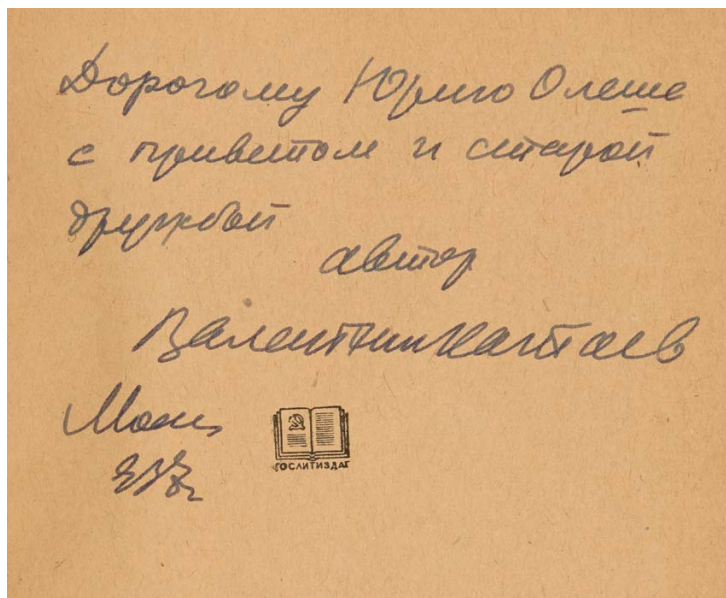 Дорогому Юрию Олеше
с приветом и старой
дружбой
автор
Валентин Катаев
Москва
ГОСЛИТИЗДАТ